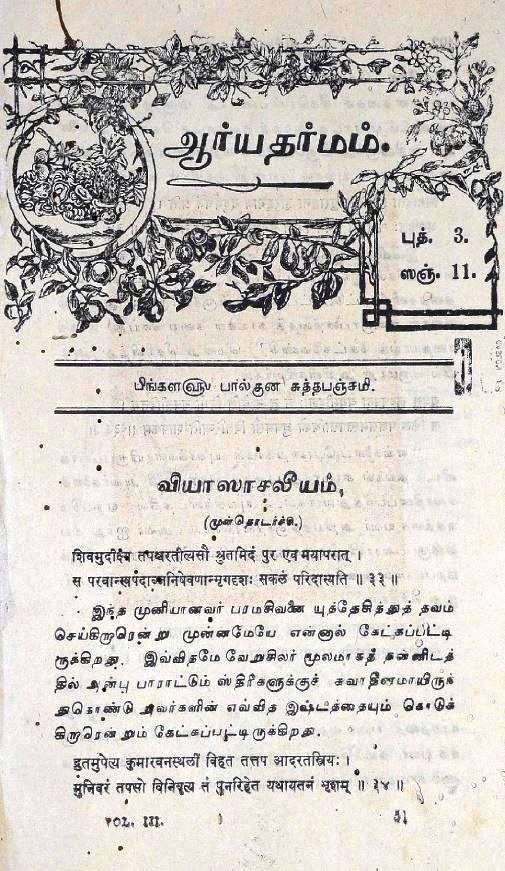 ஆர்யதர்மம்.
புத். 3.
ஸஞ். 11.
பிங்களளு பால்குன சுத்தபஞ்சமி.
வியாஸாசலீயம்,
(முன்தொடர்ச்சி.)
शिवमुदीक्ष्य तपश्चरतीत्यसौ श्रुतमिदं पुर एव मयापरात् ।
स सकलं परिदास्यति ॥ ३३ ॥
இந்த முனியானவர் பரமசிவனை யுத்தேசித்துத் தவம்
செய்கிறாரென்று முன்னமேயே என்னால் கேட்கப்பட்டி
ருக்கிறது. இவ்விதமே வேறுசிலர் மூலமாகத் தன்னிடத்
தில் அன்பு பாராட்டும் ஸ்திரீகளுக்குச் சுவாதீனமாயிருக்
துகொண்டு அவர்களின் எவ்வித இஷ்டத்தையும் கொடுக்
கிறாரென்றும் கேட்கப்பட்டிருக்கிறது.
द्रुतमुपेत्य कुमारवनस्थलीं विहृत तत्तप आदरतस्त्रियः ।
मुनिवरं तपसो विनिवृत्य तं पुनरिहैत यथायतनं भृशम् ॥ ३४ ॥
VOL. III.